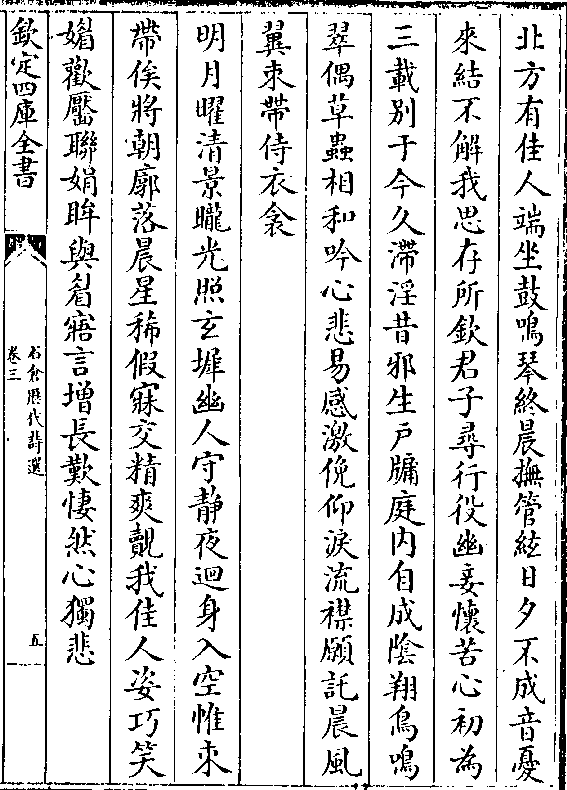 北方有佳人端坐鼓鳴琴終晨撫管絃日夕不成音憂
來結不解我思存所欽君子尋行役幽妾懷苦心初為
三載别于今久滯淫昔邪生戶牖庭内自成陰翔鳥鳴
翠偶草蟲相和吟心悲易感激俛仰淚流襟願託晨風
翼束帶侍衣衾
明月曜清景曨光照玄墀幽人守静夜迴身入空帷束
帶俟將朝廓落晨星稀假寐交精爽覿我佳人姿巧笑
媚歡靨聯娟眸與睂寤言增長歎悽然心獨悲
欽定四庫全書
石倉歷代詩選
卷三
五